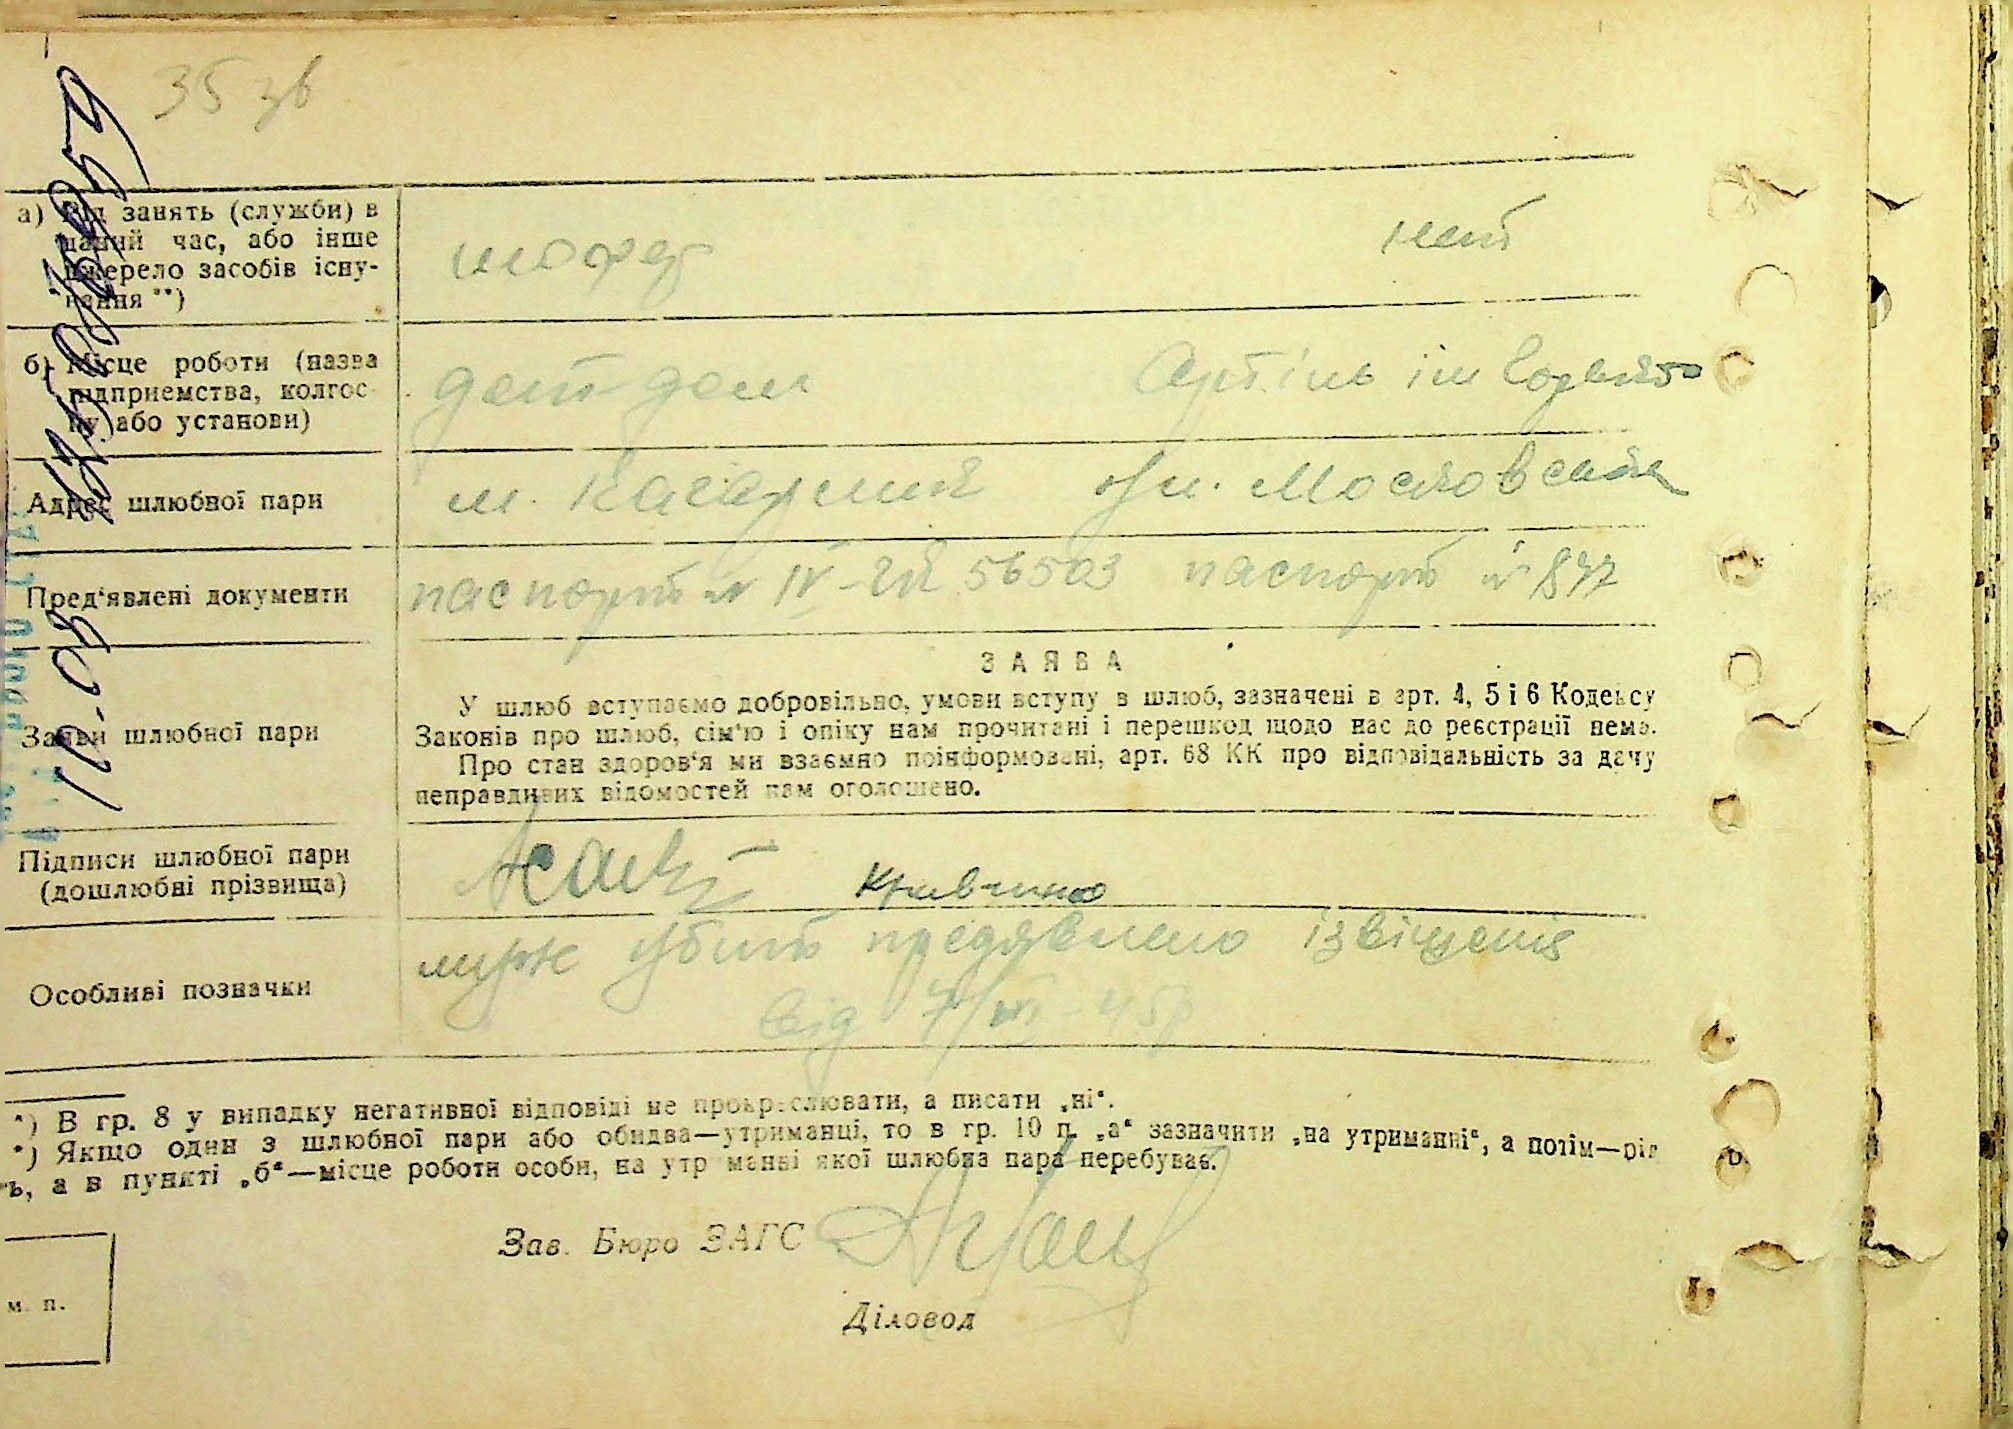 35 зв
а) Від занять (служби) в
даний час, або інше
джерело засобів існу-
вання **)
шофер
нет
б) Місце роботи (назва
підприємства, колгос-
пу або установи)
дет дом
Артіль ім
Адрес шлюбної пари
м. Кагарлик
ул. Московская
Пред'явлені документи
паспорт № IV- 56503 паспорт № 847
ЗАЯВА
Заяви шлюбної пари
У шлюб вступаємо добровільно, умови вступу в шлюб, зазначені в арт. 4, 5 і 6 Кодексу
Законів про шлюб, сім'ю і опіку нам прочитані і перешкод щодо нас до реєстрації нема.
Про стан здоров'я ми взаємно поінформовані, арт. 68 КК про відповідальність за дачу
неправдивих відомостей нам оголошено.
Підписи шлюбної пари
(дошлюбні прізвища)
Особливі позначки
муж убит предявлено ізвіщення
від 7/VI-45р
*) В гр. 8 у випадку негативної відповіді не прокреслювати, а писати „ні“.
*) Якщо один з шлюбної пари або обидва—утриманці, то в гр. 10 п. „а“ зазначити „на утриманні“, а потім—рід
ь, а в пункті „б“—місце роботи особи, на утриманні якої шлюбна пара перебуває.
Зав. Бюро ЗАГС
Діловод
м. п.